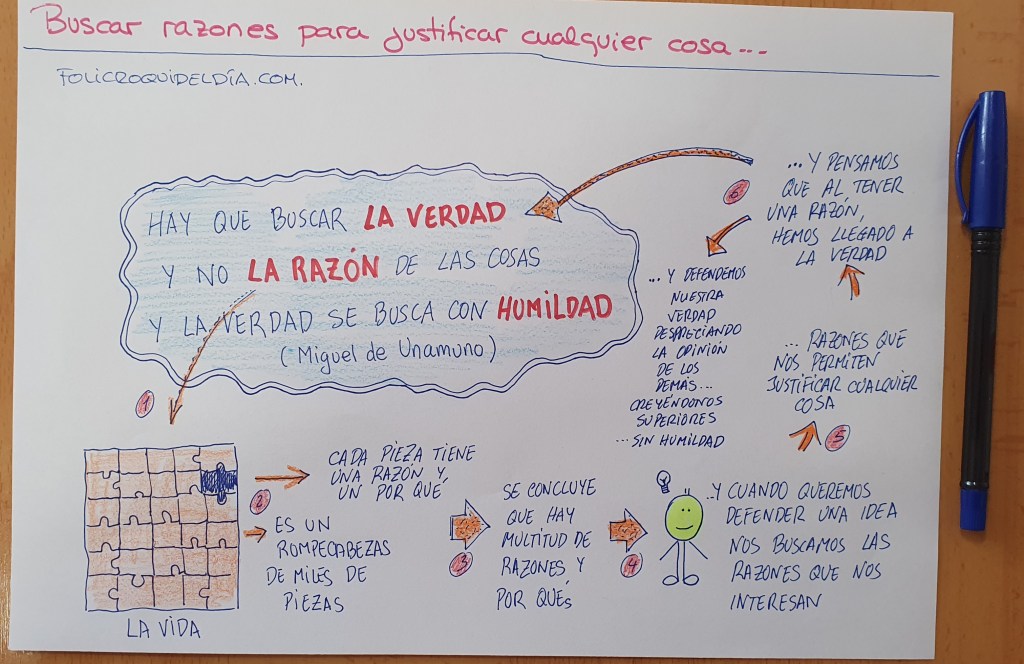 Buscar razones para justificar cualquier cosa...
FOLICROQUIDELDÍA.COM.
HAY QUE BUSCAR LA VERDAD
Y NO LA RAZÓN DE LAS COSAS
Y LA VERDAD SE BUSCA CON HUMILDAD
(Miguel de Unamuno)
1
LA VIDA
2
CADA PIEZA TIENE
UNA RAZÓN Y,
UN POR QUÉ
ES UN
ROMPECABEZAS
DE MILES DE
PIEZAS
3
SE CONCLUYE
QUE HAY
MULTITUD DE
RAZONES Y
POR QUÉS
4
...Y CUANDO QUEREMOS
DEFENDER UNA IDEA
NOS BUSCAMOS LAS
RAZONES QUE NOS
INTERESAN
5
... RAZONES QUE
NOS PERMITEN
JUSTIFICAR CUALQUIER
COSA
6
... Y PENSAMOS
QUE AL TENER
UNA RAZÓN,
HEMOS LLEGADO A
LA VERDAD
... Y DEFENDEMOS
NUESTRA
VERDAD
DESPRECIANDO
LA OPINIÓN
DE LOS
DEMÁS...
CREYÉNDONOS
SUPERIORES
...SIN HUMILDAD